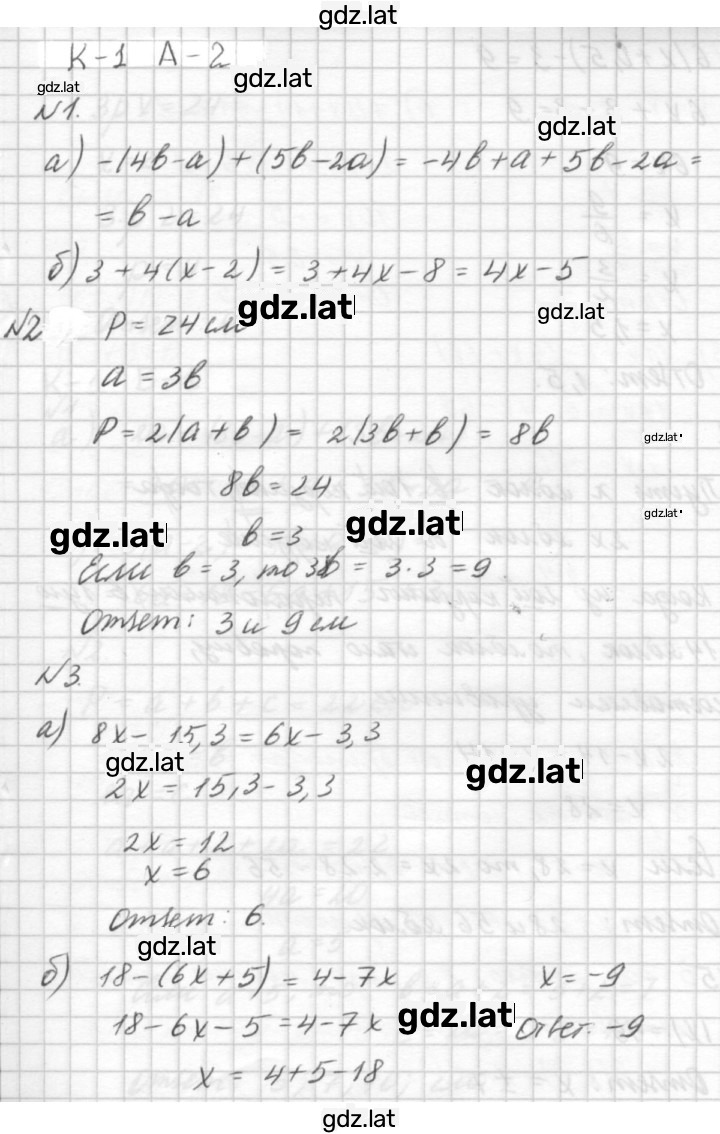 gdz.lat
К-1 А-2
gdz.lat
gdz.lat
№1.
gdz.lat
а) -(4в-а)+(5в-2а) = -4в+а+5в-2а =
= в-а
б) 3+4(х-2) = 3+4х-8 = 4х-5
gdz.lat
gdz.lat
№2 Р = 24 см
а = 3в
Р = 2(а+в) = 2(3в+в) = 8в
gdz.lat
8в = 24
gdz.lat
gdz.lat
gdz.lat
в = 3
Если в = 3, то 3в = 3·3 = 9
Ответ: 3 и 9 см
№3.
а) 8х - 15,3 = 6х - 3,3
gdz.lat
gdz.lat
2х = 15,3 - 3,3
2х = 12
х = 6
Ответ: 6.
gdz.lat
б) 18-(6х+5) = 4-7х х = -9
gdz.lat
18-6х-5 = 4-7х Ответ. -9
х = 4+5-18
gdz.lat